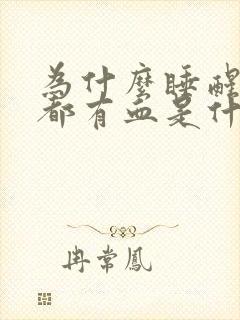 為什麼睡醒
都有血是什
冉常鳳